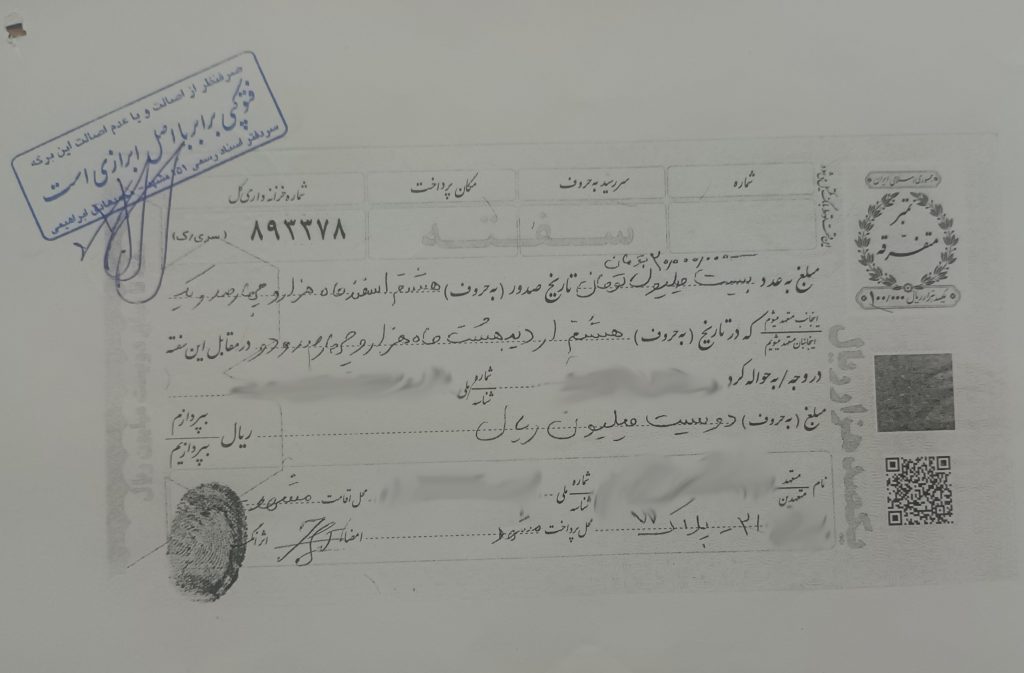 صرفنظر از اصالت و یا عدم اصالت این برگه
فتوکپی برابر با اصل ابرازی است
سردفتر اسناد رسمی ۱۵۱ مشهد
ابراهیمی
جمهوری اسلامی ایران
تمبر
متفرقه
یکصد هزار ریال
۱۰۰/۰۰۰
شماره
سررسید به حروف
مکان پرداخت
شماره خزانه داری کل
سفته
۸۹۳۳۷۸ (سری/ک)
۲۰,۰۰۰,۰۰۰ تومان
مبلغ به عدد بیست میلیون تومان تاریخ صدور (به حروف) هشتم اسفند ماه هزار و چهارصد و یک
اینجانب متعهد میشوم
اینجانبان متعهد میشویم
که در تاریخ (به حروف) هشتم اردیبهشت ماه هزار و چهارصد و دو در مقابل این سفته
در وجه/به حواله کرد
شماره
شناسه
ملی
مبلغ (به حروف) دویست میلیون ریال ریال
بپردازم
بپردازیم
نام
متعهد
متعهدین
شماره
شناسه
ملی
محل اقامت مشهد
۲۱ پلاک ۷۷
محل پرداخت مشهد
امضاء
یکصد هزار ریال
دویست میلیون ریال